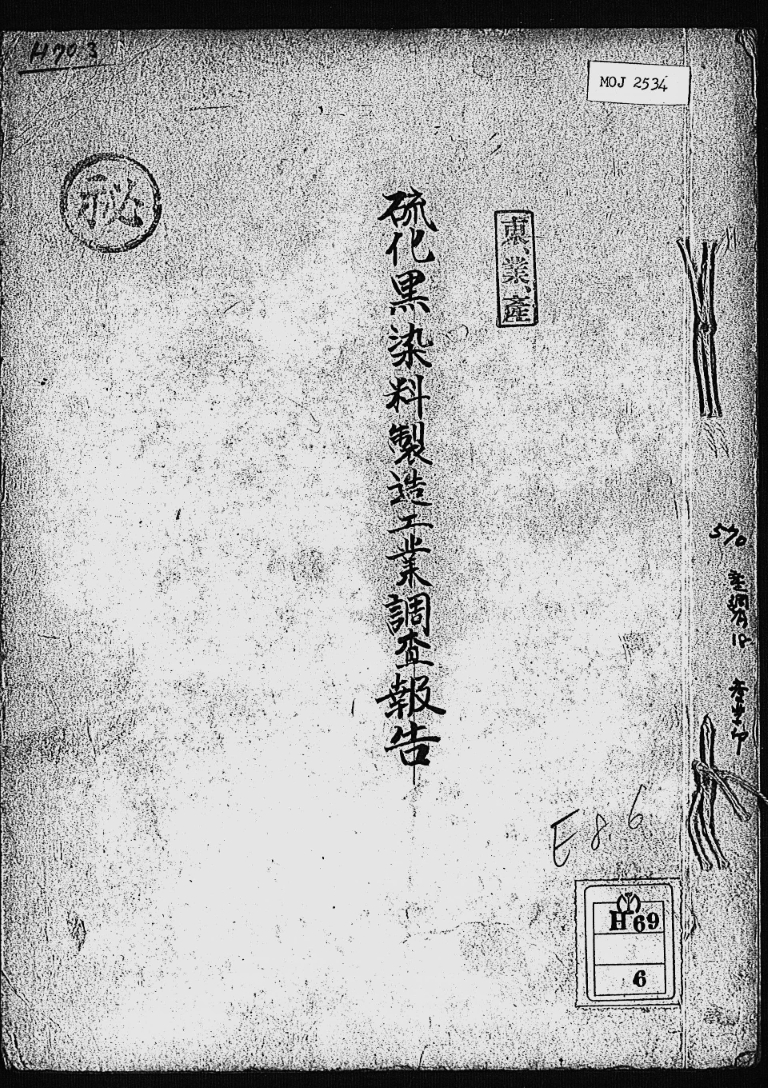 H703
MOJ 2534
秘
東、業、產
硫化黒染料製造工業調査報告
570
18
E 8.6
H 69
6